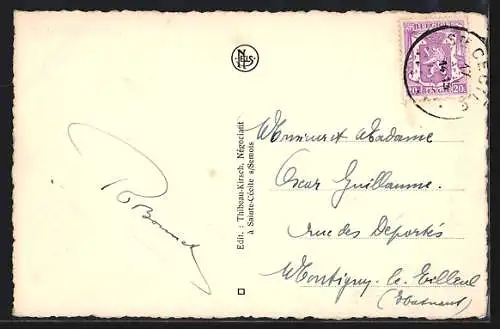 NELS
BELGIQUE
20
STE CECILE
Edit. : Thibeau-Kirsch, Négociant
à Sainte-Cécile s/Semois
Monsieur et Madame
Oscar Guillaume.
rue des Déportés
Montigny-le-Tilleul
(Hainaut)